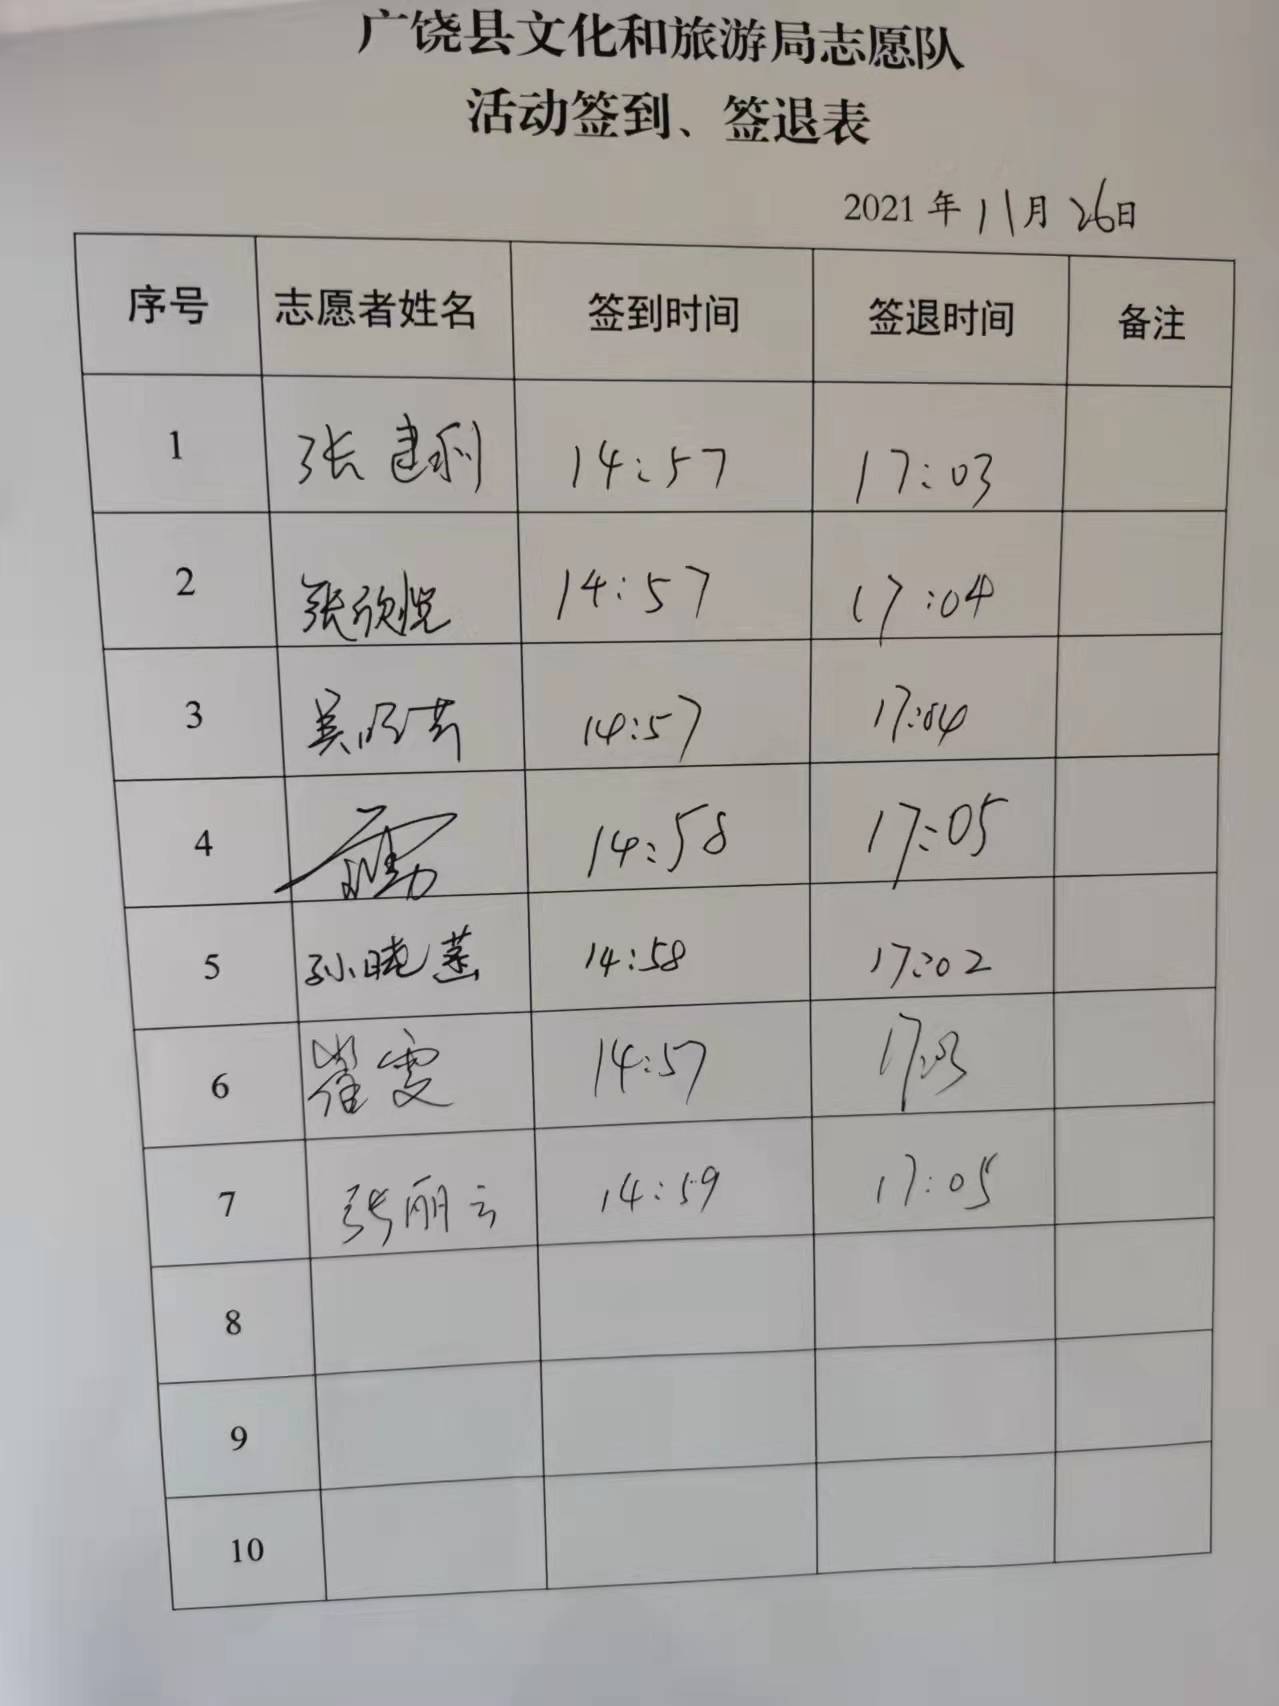 广饶县文化和旅游局志愿队
活动签到、签退表
2021年11月26日
序号 志愿者姓名 签到时间 签退时间 备注
1 张建利 14:57 17:03
2 张欣悦 14:57 17:04
3 吴 14:57 17:04
4 14:58 17:05
5 孙晓燕 14:58 17:02
6 崔雯 14:57 17:03
7 张丽云 14:59 17:05
8
9
10